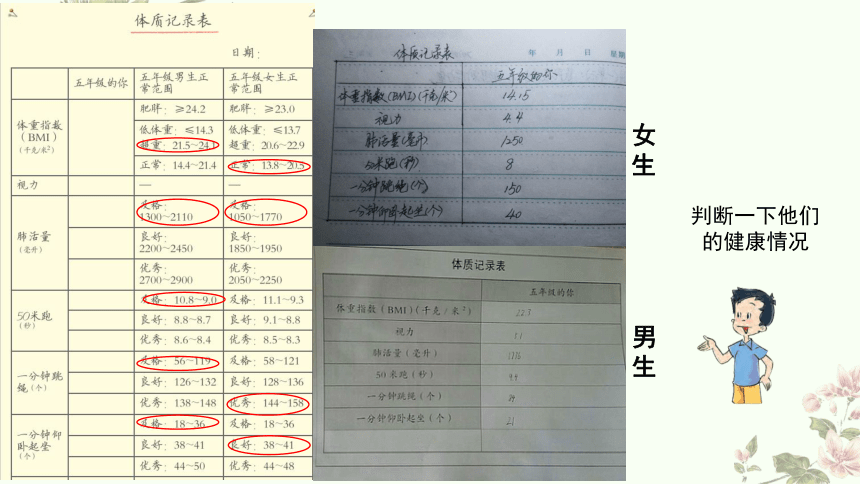 体质记录表
日期：
五年级的你 五年级男生正常范围 五年级女生正常范围
体重指数（BMI）（千克/米²）
肥胖：≥24.2 肥胖：≥23.0
低体重：≤14.3 低体重：≤13.7
超重：21.5~24.1 超重：20.6~22.9
正常：14.4~21.4 正常：13.8~20.5
视力 — —
肺活量（毫升）
及格：1300~2110 及格：1050~1770
良好：2200~2450 良好：1850~1950
优秀：2700~2900 优秀：2050~2250
50米跑（秒）
及格：10.8~9.0 及格：11.1~9.3
良好：8.8~8.7 良好：9.1~8.8
优秀：8.6~8.4 优秀：8.5~8.3
一分钟跳绳（个）
及格：56~119 及格：58~121
良好：126~132 良好：128~136
优秀：138~148 优秀：144~158
一分钟仰卧起坐（个）
及格：18~36 及格：18~36
良好：38~41 良好：38~41
优秀：44~50 优秀：44~48
体质记录表 年 月 日 星期
五年级的你
体重指数(BMI)(千克/米²) 14.15
视力 4.4
肺活量(毫升) 1250
50米跑(秒) 8
一分钟跳绳(个) 150
一分钟仰卧起坐(个) 40
体质记录表
五年级的你
体重指数（BMI）（千克/米²） 22.3
视力
肺活量（毫升）
50米跑（秒） 9.9
一分钟跳绳（个）
一分钟仰卧起坐（个） 21
女生
男生
判断一下他们
的健康情况